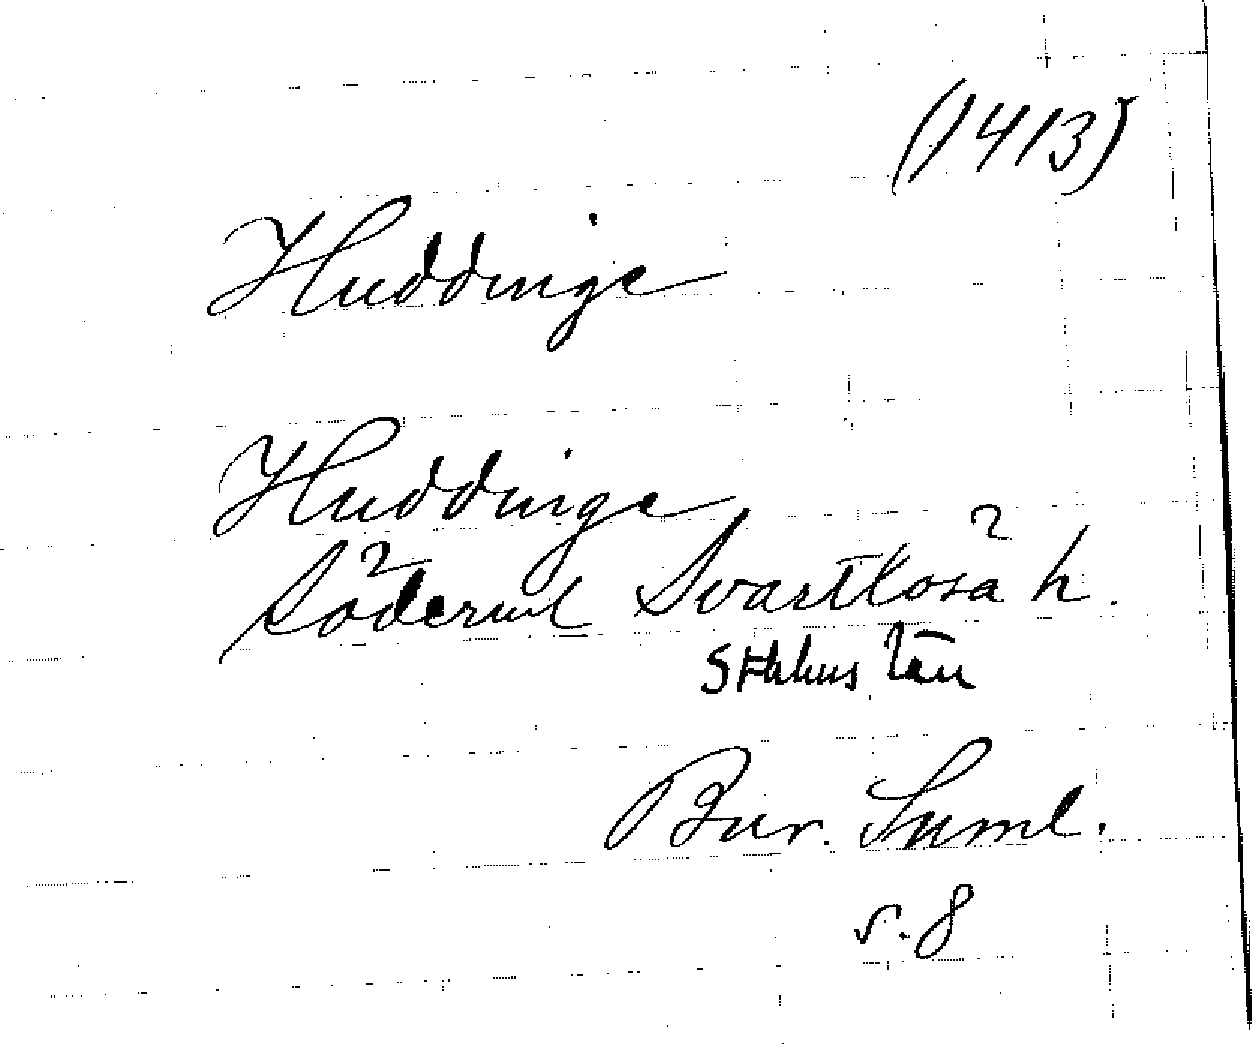 (1413)
Huddinge
Huddinge
Söderml Svartlösa h.
Sthlms län
Bur. Suml.
s. 8